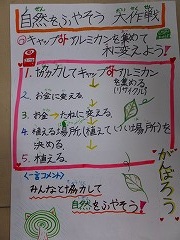 しぜん だい さく せん
自然をふやそう 大作戦
◎キャップやアルミカンを集めて
木に変えよう!
1. 協力してキャップやアルミカン
を集める
(リサイクル)
2. お金に変える。
3. お金→たねに変える。
4. 植える場所(植えていい場所)を
決める。
5. 植える。
がんばろう
<一言コメント>
みんなで協力して
自然をふやそう!